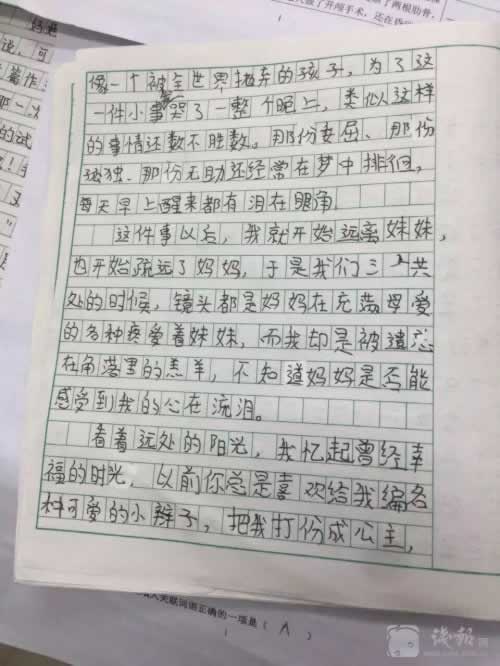 两根肋骨，
了开颅手术，还在
妈妈
说，可
像一个被全世界抛弃的孩子，为了这
一件小事哭了一整个晚上，类似这样
的事情还数不胜数。那份委屈、那份
孤独、那份无助还经常在梦中排徊，
每天早上醒来都有泪在眼角。
这件事以后，我就开始远离妹妹，
也开始疏远了妈妈，于是我们三人共
处的时候，镜头都是妈妈在充满母爱
的各种疼爱着妹妹，而我却是被遗忘
在角落里的羔羊，不知道妈妈是否能
感受到我的心在流泪。
看着远处的阳光，我忆起曾经幸
福的时光，以前你总是喜欢给我编各
种可爱的小辫子，把我打份成公主，
关联词语正确的一项是（ A ）
钱报网